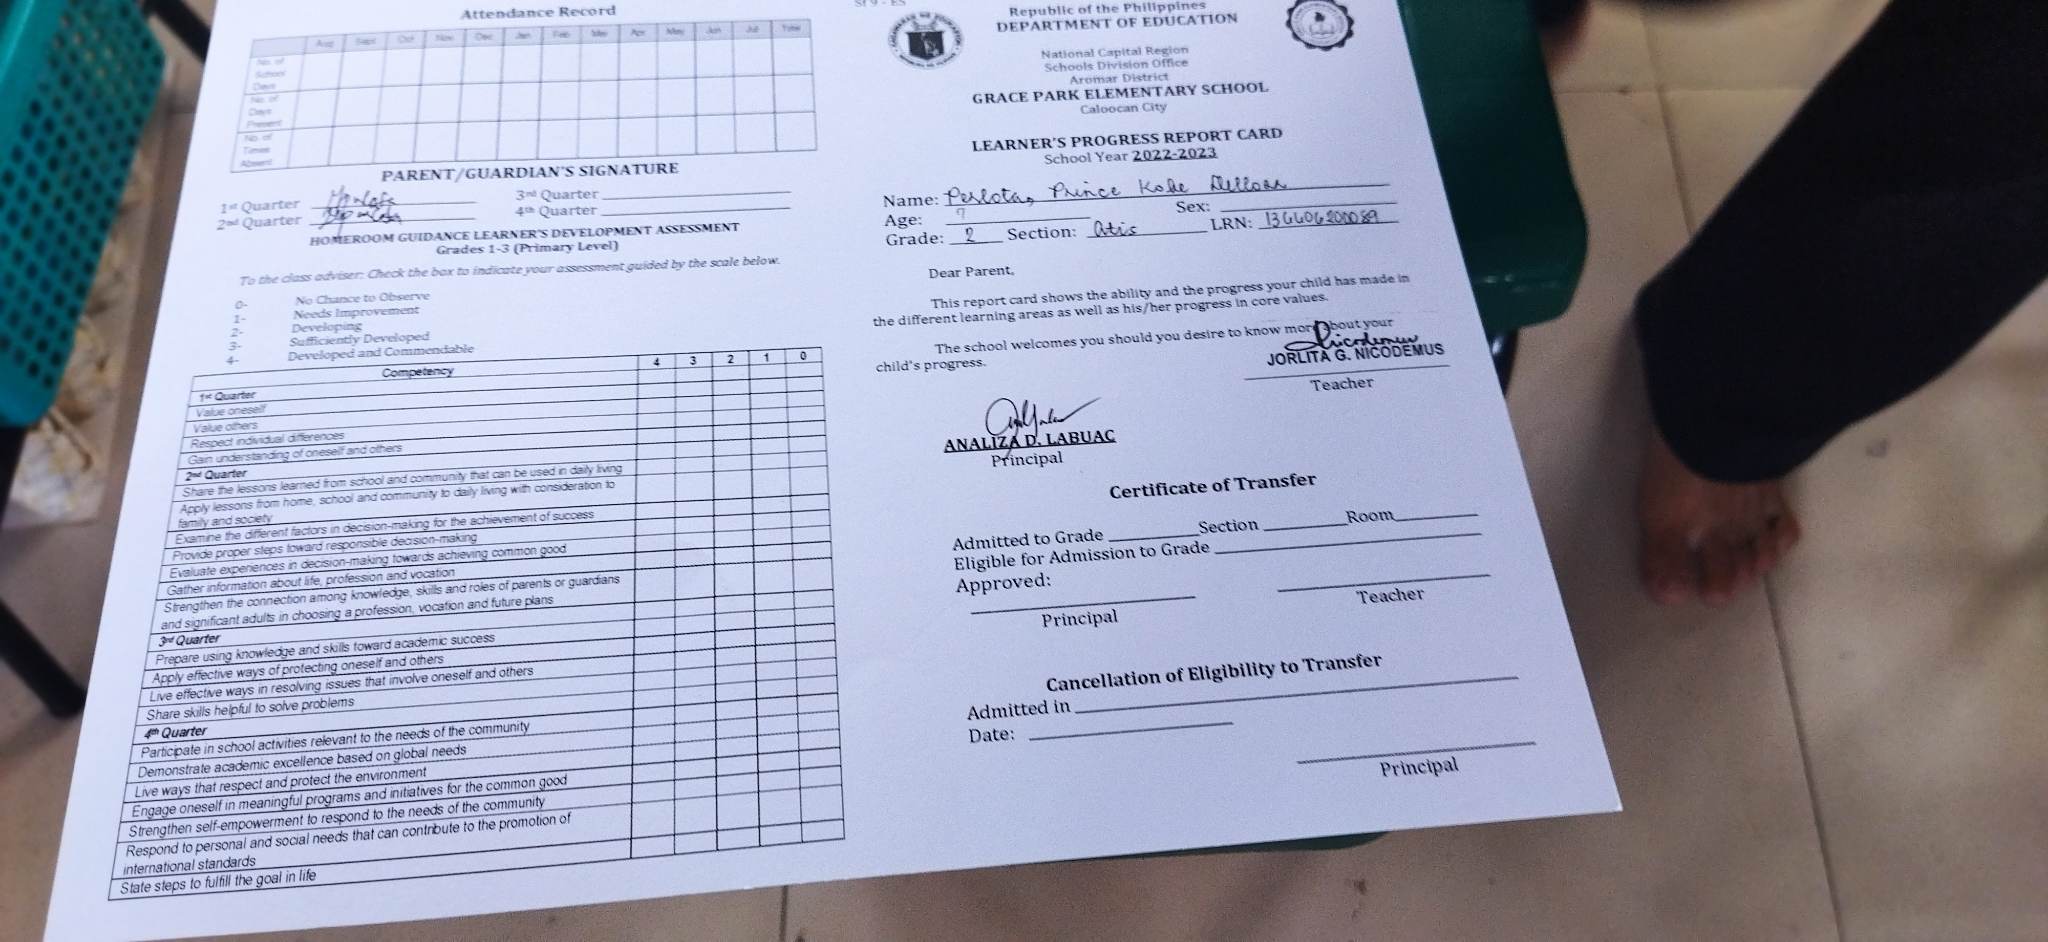 Attendance Record
Aug Sept Oct Nov Dec Jan Feb Mar Apr May Jun Jul Total
No. of
School
Days
No. of
Days
Present
No. of
Times
Absent
PARENT/GUARDIAN'S SIGNATURE
1st Quarter
3rd Quarter
2nd Quarter
4th Quarter
HOMEROOM GUIDANCE LEARNER'S DEVELOPMENT ASSESSMENT
Grades 1-3 (Primary Level)
To the class adviser: Check the box to indicate your assessment guided by the scale below.
0- No Chance to Observe
1- Needs Improvement
2- Developing
3- Sufficiently Developed
4- Developed and Commendable
Competency 4 3 2 1 0
1st Quarter
Value oneself
Value others
Respect individual differences
Gain understanding of oneself and others
2nd Quarter
Share the lessons learned from school and community that can be used in daily living
Apply lessons from home, school and community to daily living with consideration to
family and society
Examine the different factors in decision-making for the achievement of success
Provide proper steps toward responsible decision-making
Evaluate experiences in decision-making towards achieving common good
Gather information about life, profession and vocation
Strengthen the connection among knowledge, skills and roles of parents or guardians
and significant adults in choosing a profession, vocation and future plans
3rd Quarter
Prepare using knowledge and skills toward academic success
Apply effective ways of protecting oneself and others
Live effective ways in resolving issues that involve oneself and others
Share skills helpful to solve problems
4th Quarter
Participate in school activities relevant to the needs of the community
Demonstrate academic excellence based on global needs
Live ways that respect and protect the environment
Engage oneself in meaningful programs and initiatives for the common good
Strengthen self-empowerment to respond to the needs of the community
Respond to personal and social needs that can contribute to the promotion of
international standards
State steps to fulfill the goal in life
SF9 - ES
Republic of the Philippines
DEPARTMENT OF EDUCATION
National Capital Region
Schools Division Office
Aromar District
GRACE PARK ELEMENTARY SCHOOL
Caloocan City
LEARNER'S PROGRESS REPORT CARD
School Year 2022-2023
Name: Perlota, Prince Kobe
Age: 7 Sex:
Grade: 2 Section: Atis LRN: 136606200089
Dear Parent,
This report card shows the ability and the progress your child has made in
the different learning areas as well as his/her progress in core values.
The school welcomes you should you desire to know more about your
child's progress.
Nicodemus
JORLITA G. NICODEMUS
Teacher
ANALIZA D. LABUAC
Principal
Certificate of Transfer
Admitted to Grade Section Room
Eligible for Admission to Grade
Approved:
Principal
Teacher
Cancellation of Eligibility to Transfer
Admitted in
Date:
Principal